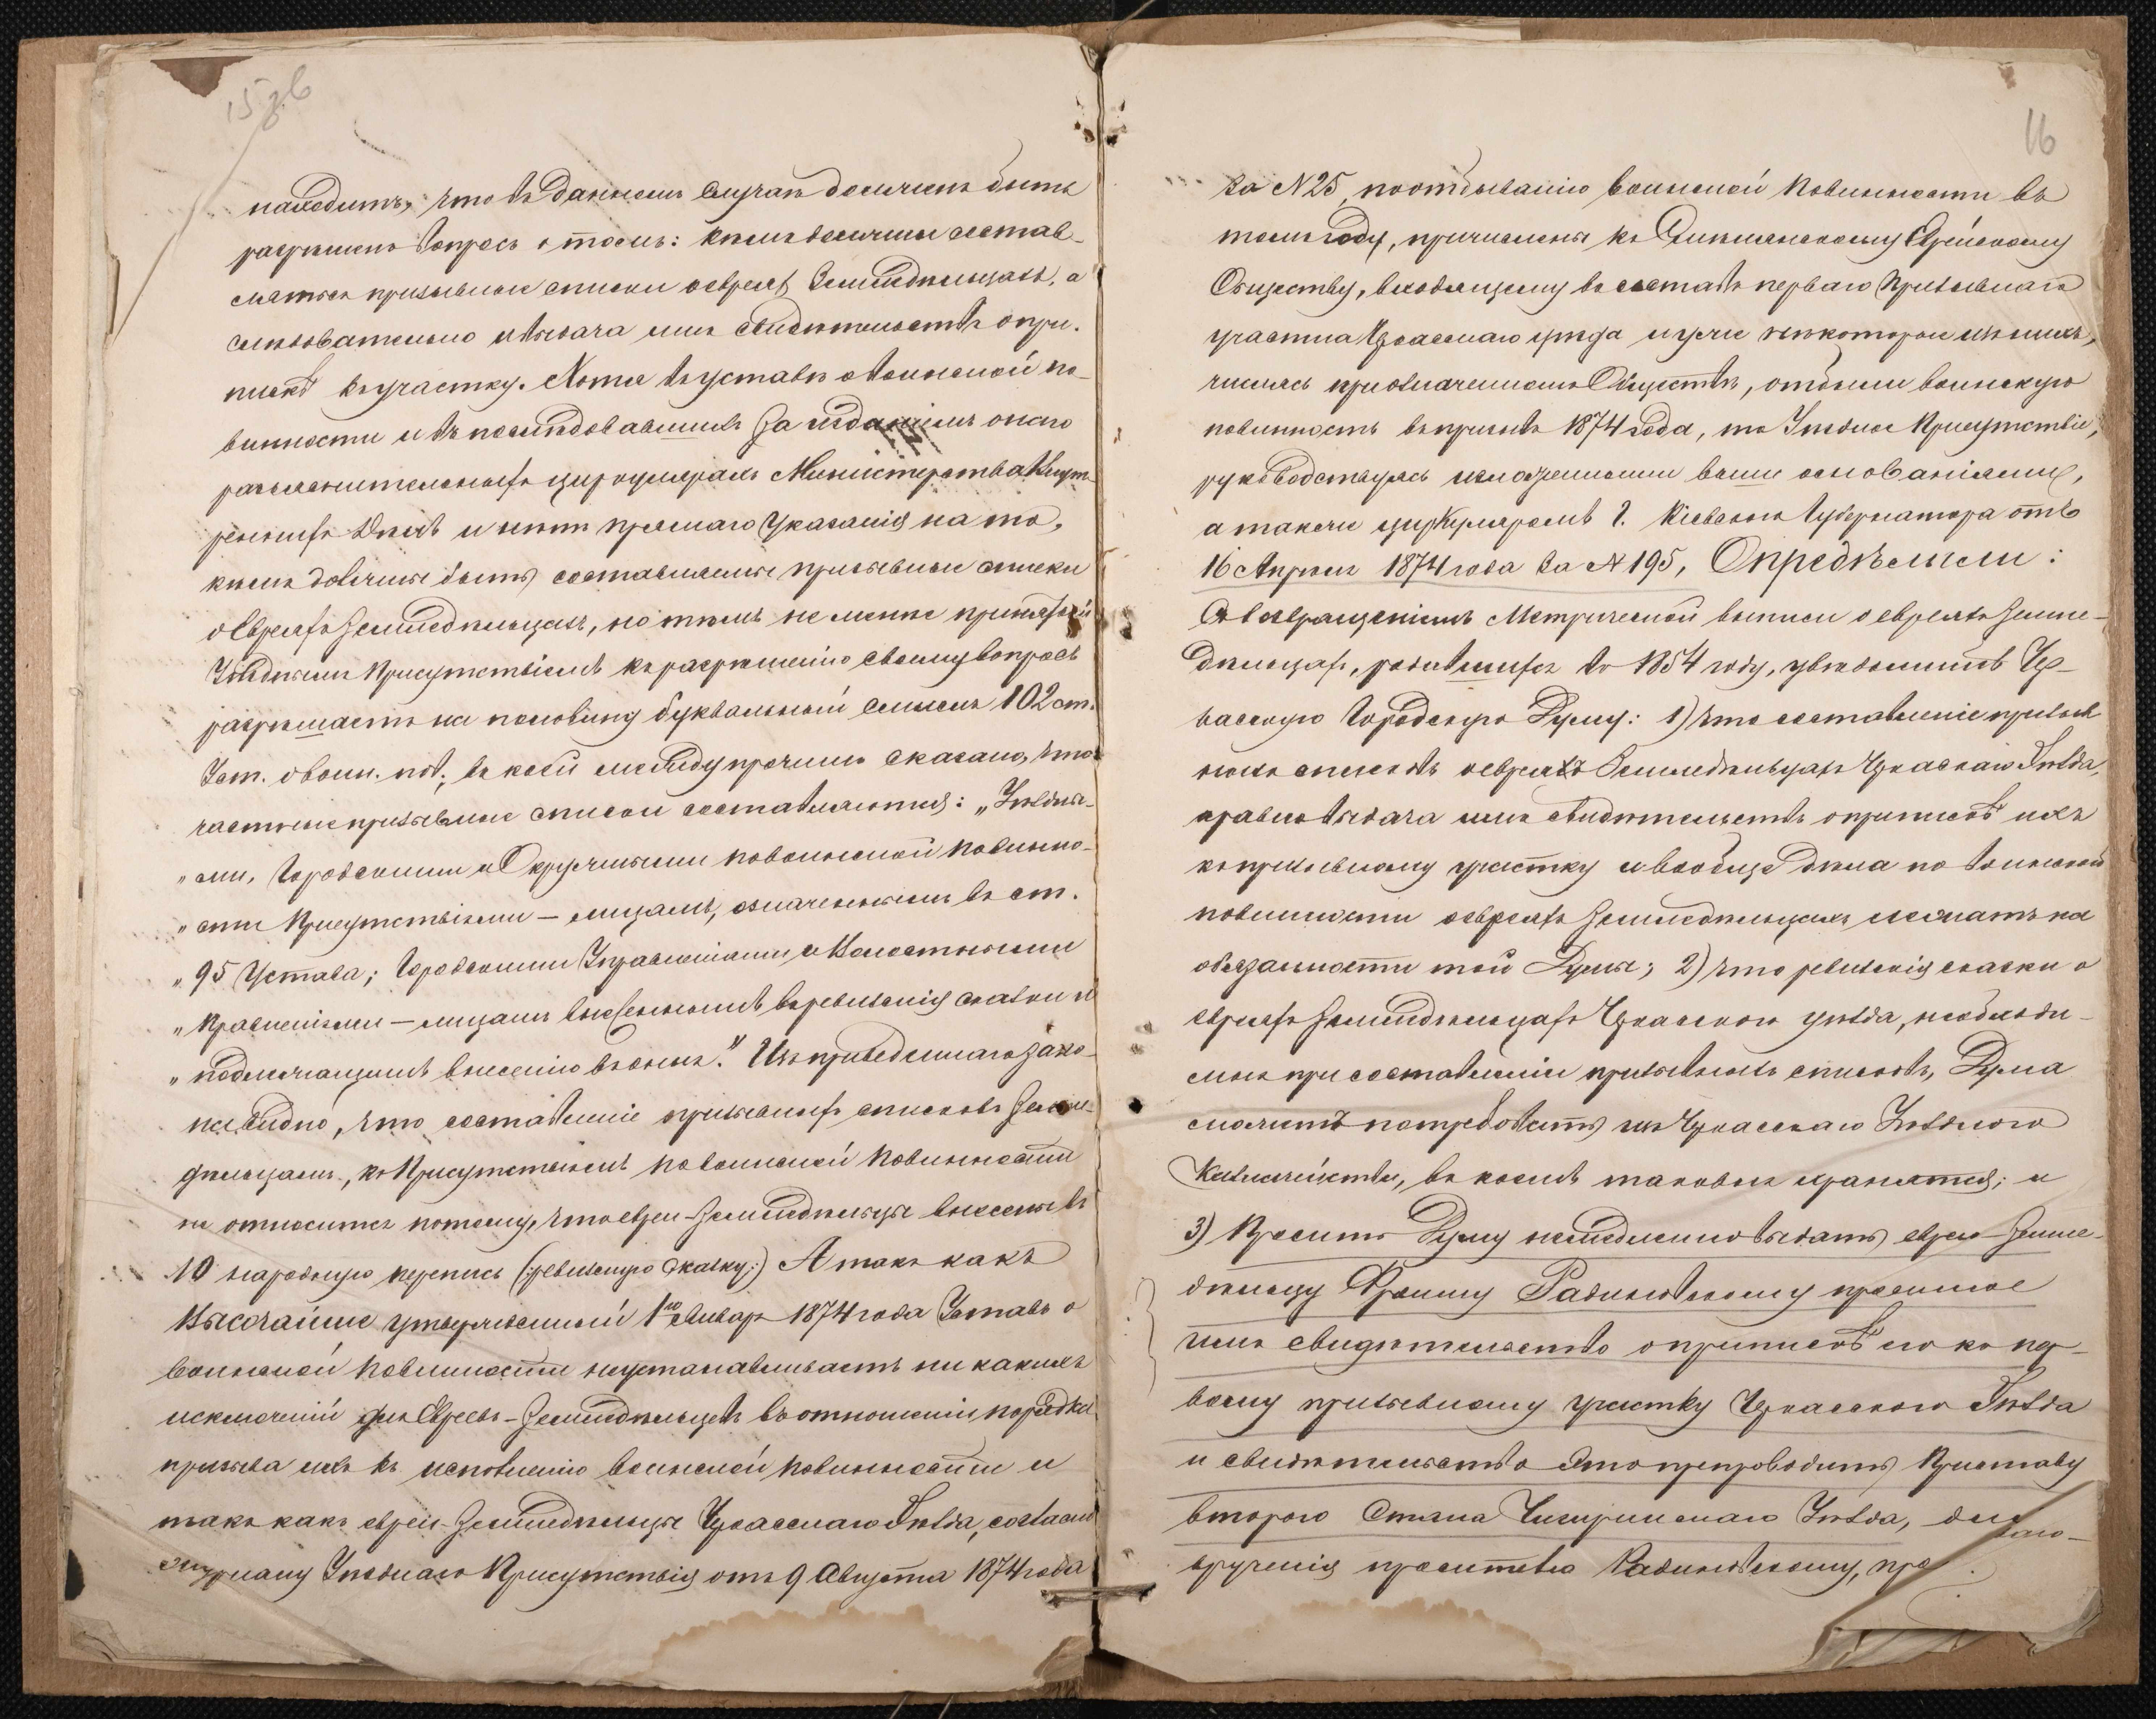 15 зв
находитъ, что въ данномъ случаѣ долженъ быть
разрѣшенъ вопросъ о томъ: кѣмъ должны состав-
ляться призывные списки о евреяхъ земледѣльцахъ, а
слѣдовательно и выдача имъ свидѣтельствъ о при-
пискѣ къ участку. Хотя въ уставѣ о воинской по-
винности и въ послѣдовавшихъ за изданіемъ онаго
разъяснительныхъ циркулярахъ Министерства Внут-
реннихъ Дѣлъ и нѣтъ прямаго указанія на то,
кѣмъ должны быть составляемы призывные списки
о евреяхъ земледѣльцахъ, но тѣмъ не менѣе принятый
Уѣзднымъ Присутствіемъ къ разрѣшенію своему вопросъ
разрѣшаетъ на половину буквальный смыслъ 102 ст.
Уст. о воин. пов., въ коей между прочимъ сказано, что
частные призывные списки составляются: „Уѣздны-
„ми, Городскими и Окружными по воинской повинно-
„сти Присутствіями — лицамъ, означеннымъ въ ст.
„95 Устава; Городскими Управленіями и Волостными
„Правленіями — лицамъ внесеннымъ въ ревизскія сказки и
„подлежащимъ внесенію въ оныя." Изъ приведеннаго зако-
на видно, что составленіе призывныхъ списковъ земле-
дѣльцамъ, къ Присутствіямъ по воинской повинности
не относится потому, что евреи-земледѣльцы внесены въ
10 народную перепись (ревизскую сказку:) А такъ какъ
Высочайше утвержденный 1го Января 1874 года Уставъ о
воинской повинности не устанавливаетъ ни какихъ
исключеній для Евреевъ-земледѣльцевъ въ отношеніи порядка
призыва ихъ къ исполненію воинской повинности и
такъ какъ евреи-земледѣльцы Черкасскаго Уѣзда, согласно
журналу Уѣзднаго Присутствія отъ 9 Августа 1874 года
16
за № 25, по отбыванію воинской повинности въ
томъ году, причислены къ Еврейскому
Обществу, входящему въ составъ перваго призывнаго
участка Черкасскаго уѣзда и уже нѣкоторые изъ нихъ,
числясь при означенномъ Обществѣ, отбыли воинскую
повинность въ призывъ 1874 года, то Уѣздное Присутствіе,
руководствуясь изложенными выше основаніями,
а также циркуляромъ Г. Кіевскаго Губернатора отъ
16 Апрѣля 1874 года за № 195, Опредѣлили:
Съ возвращеніемъ Метрической выписи о евреяхъ земле-
дѣльцахъ, родившихся въ 1854 году, увѣдомить Чер-
касскую Городскую Думу: 1) что составленіе призыв-
ныхъ списковъ о евреяхъ земледѣльцахъ Черкасскаго Уѣзда,
а равно выдача имъ свидѣтельствъ о припискѣ ихъ
къ призывному участку и вообще дѣла по воинской
повинности о евреяхъ земледѣльцахъ лежатъ на
обязанности той Думы; 2) что ревизскія сказки о
евреяхъ земледѣльцахъ Черкасскаго уѣзда, необходи-
мыя при составленіи призывныхъ списковъ, Дума
можетъ потребовать изъ Черкасскаго Уѣзднаго
Казначейства, въ коемъ таковыя хранятся; и
3) Просить Думу немедленно выдать еврею-земле-
дѣльцу Фроиму Радинскому просимое
имъ свидѣтельство о припискѣ его къ пер-
вому призывному участку Черкасскаго Уѣзда
и свидѣтельство это препроводить Приставу
втораго Стана Чигиринскаго Уѣзда, для
врученія просителю Радинскому,